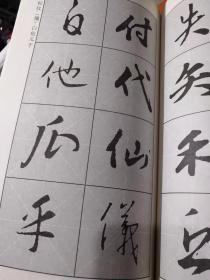 失
矢
禾
丘
付
代
仙
儀
白
他
瓜
乎